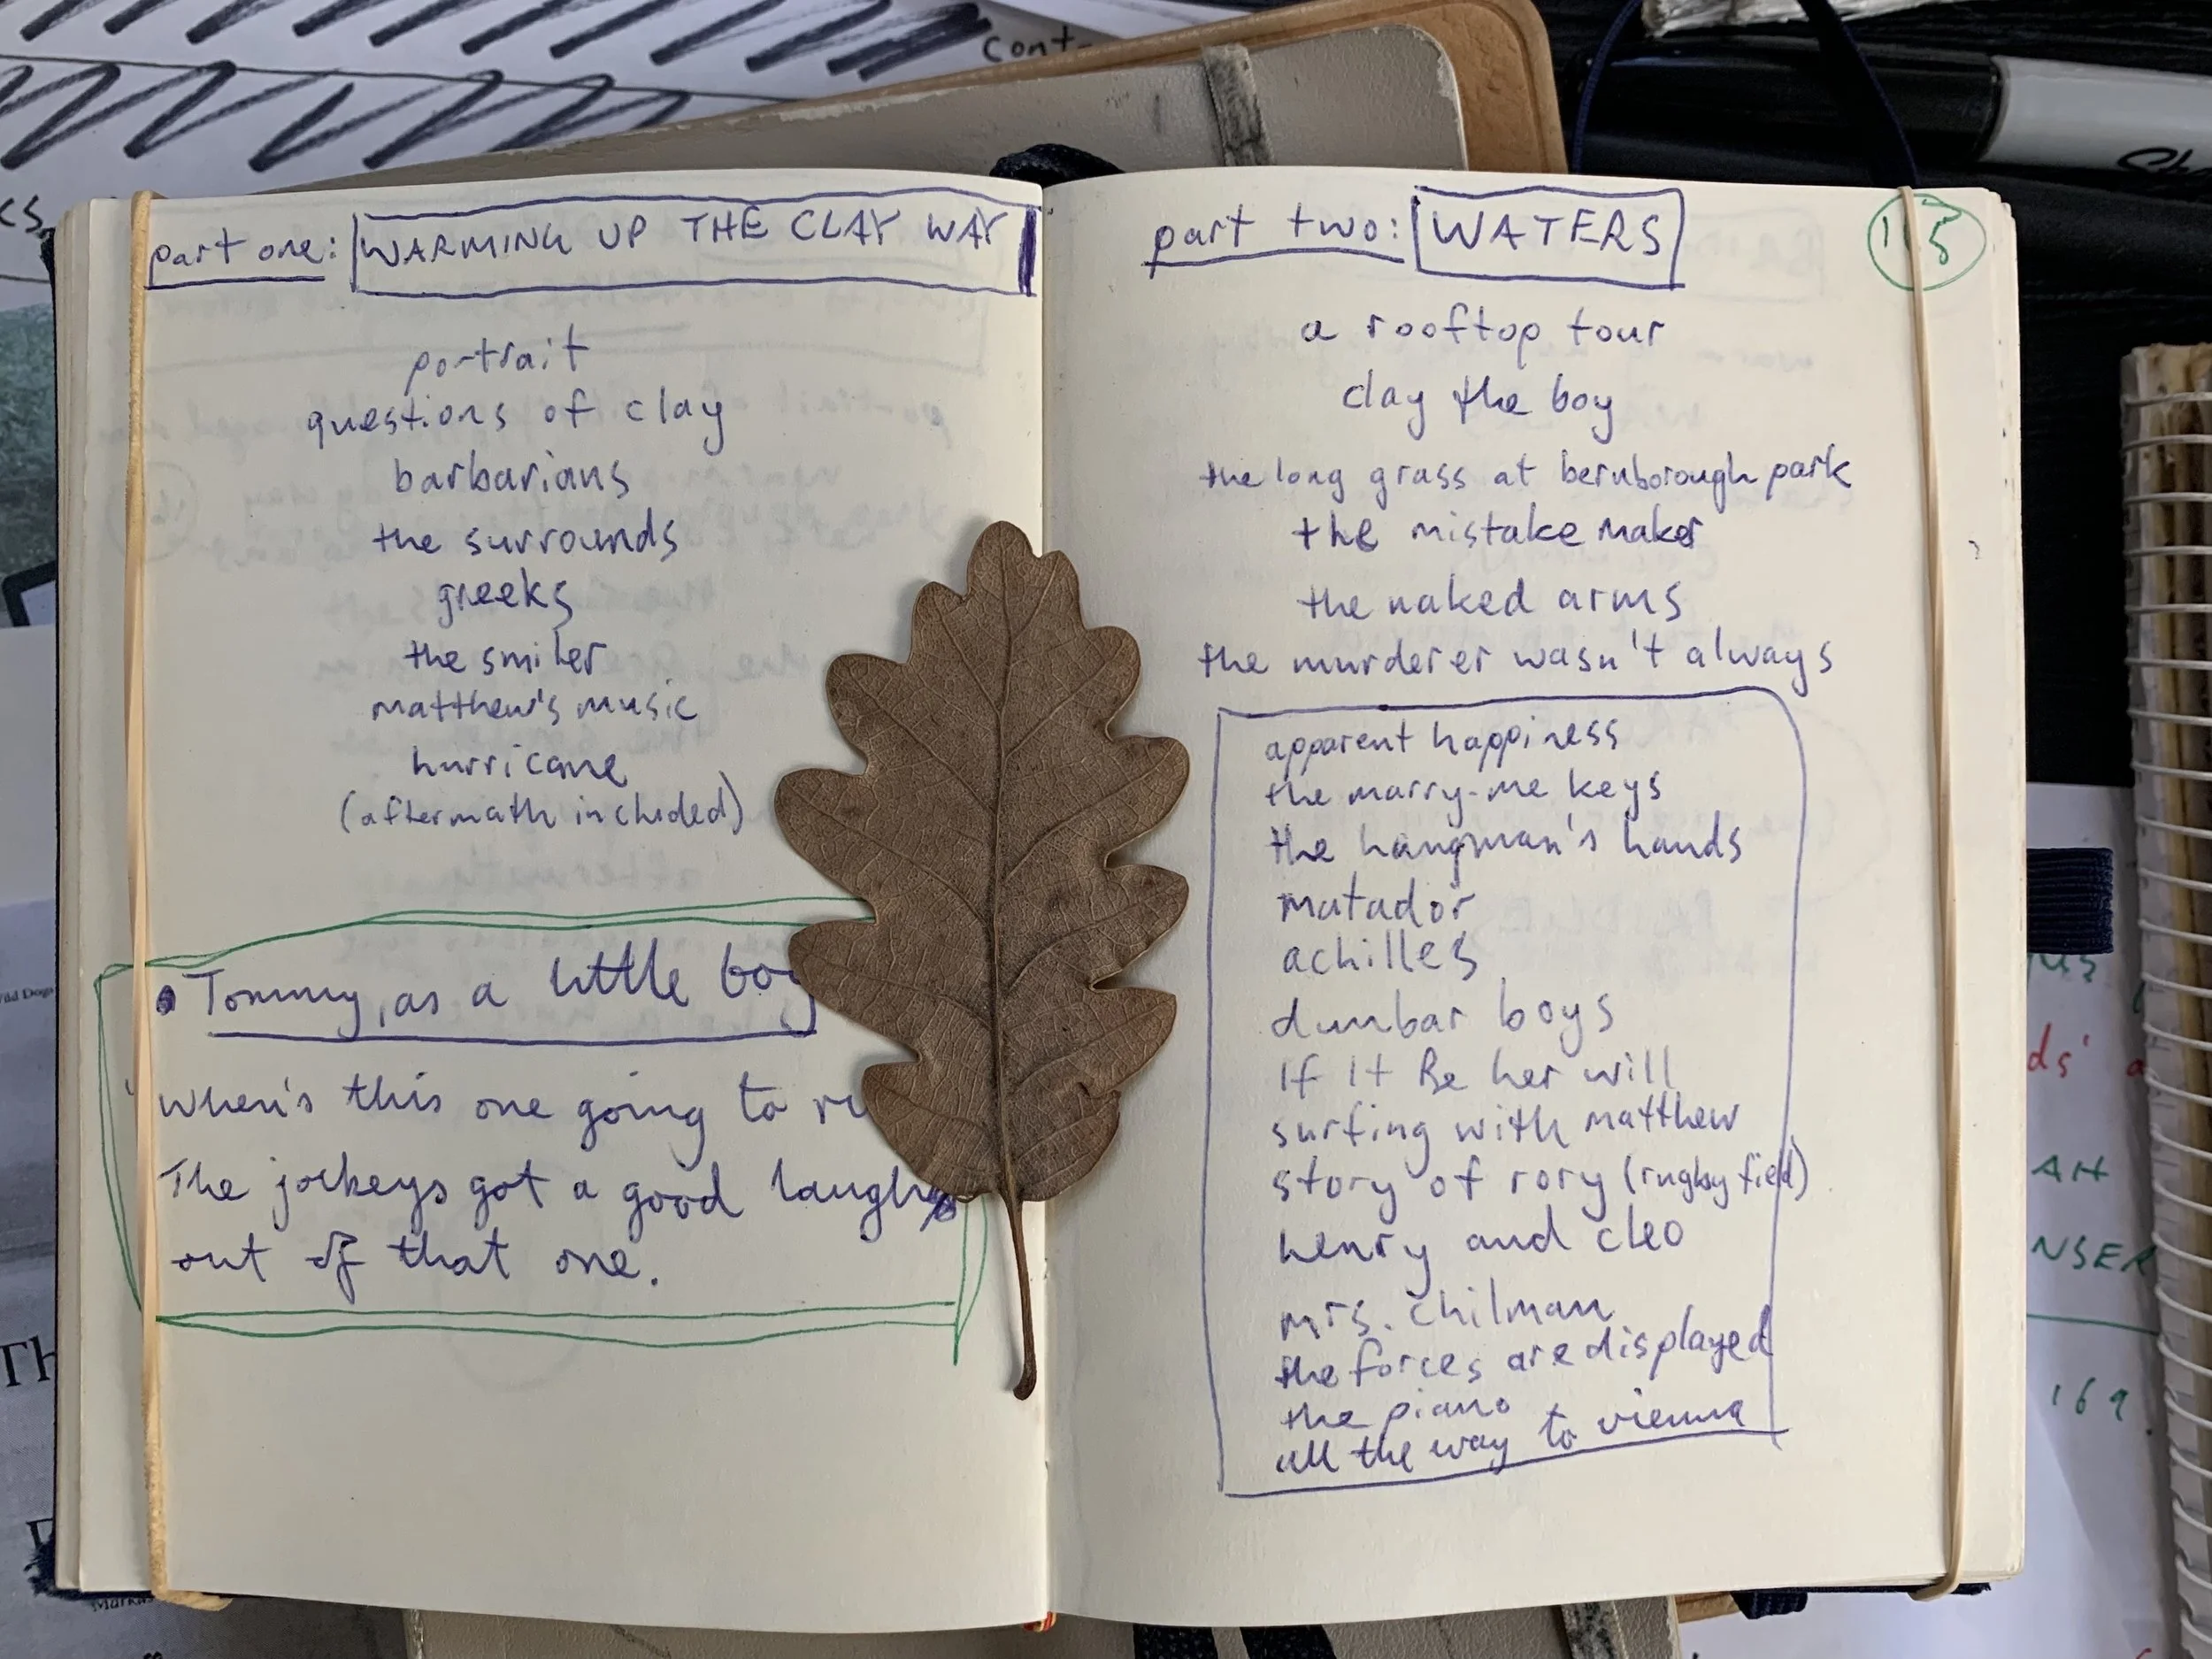 cont-
part one: WARMING UP THE CLAY WAY
portrait
questions of clay
barbarians
the surrounds
greeks
the smiler
matthew's music
hurricane
(aftermath included)
• Tommy, as a little boy
'When's this one going to
The jockeys got a good laugh
out of that one.
part two: WATERS
a rooftop tour
clay the boy
the long grass at bernborough park
the mistake maker
the naked arms
the murderer wasn't always
apparent happiness
the marry-me keys
the hangman's hands
matador
achilles
dunbar boys
If It Be her will
surfing with matthew
story of rory (rugby field)
henry and cleo
mrs. chilman
the forces are displayed
the piano
all the way to vienna
169.